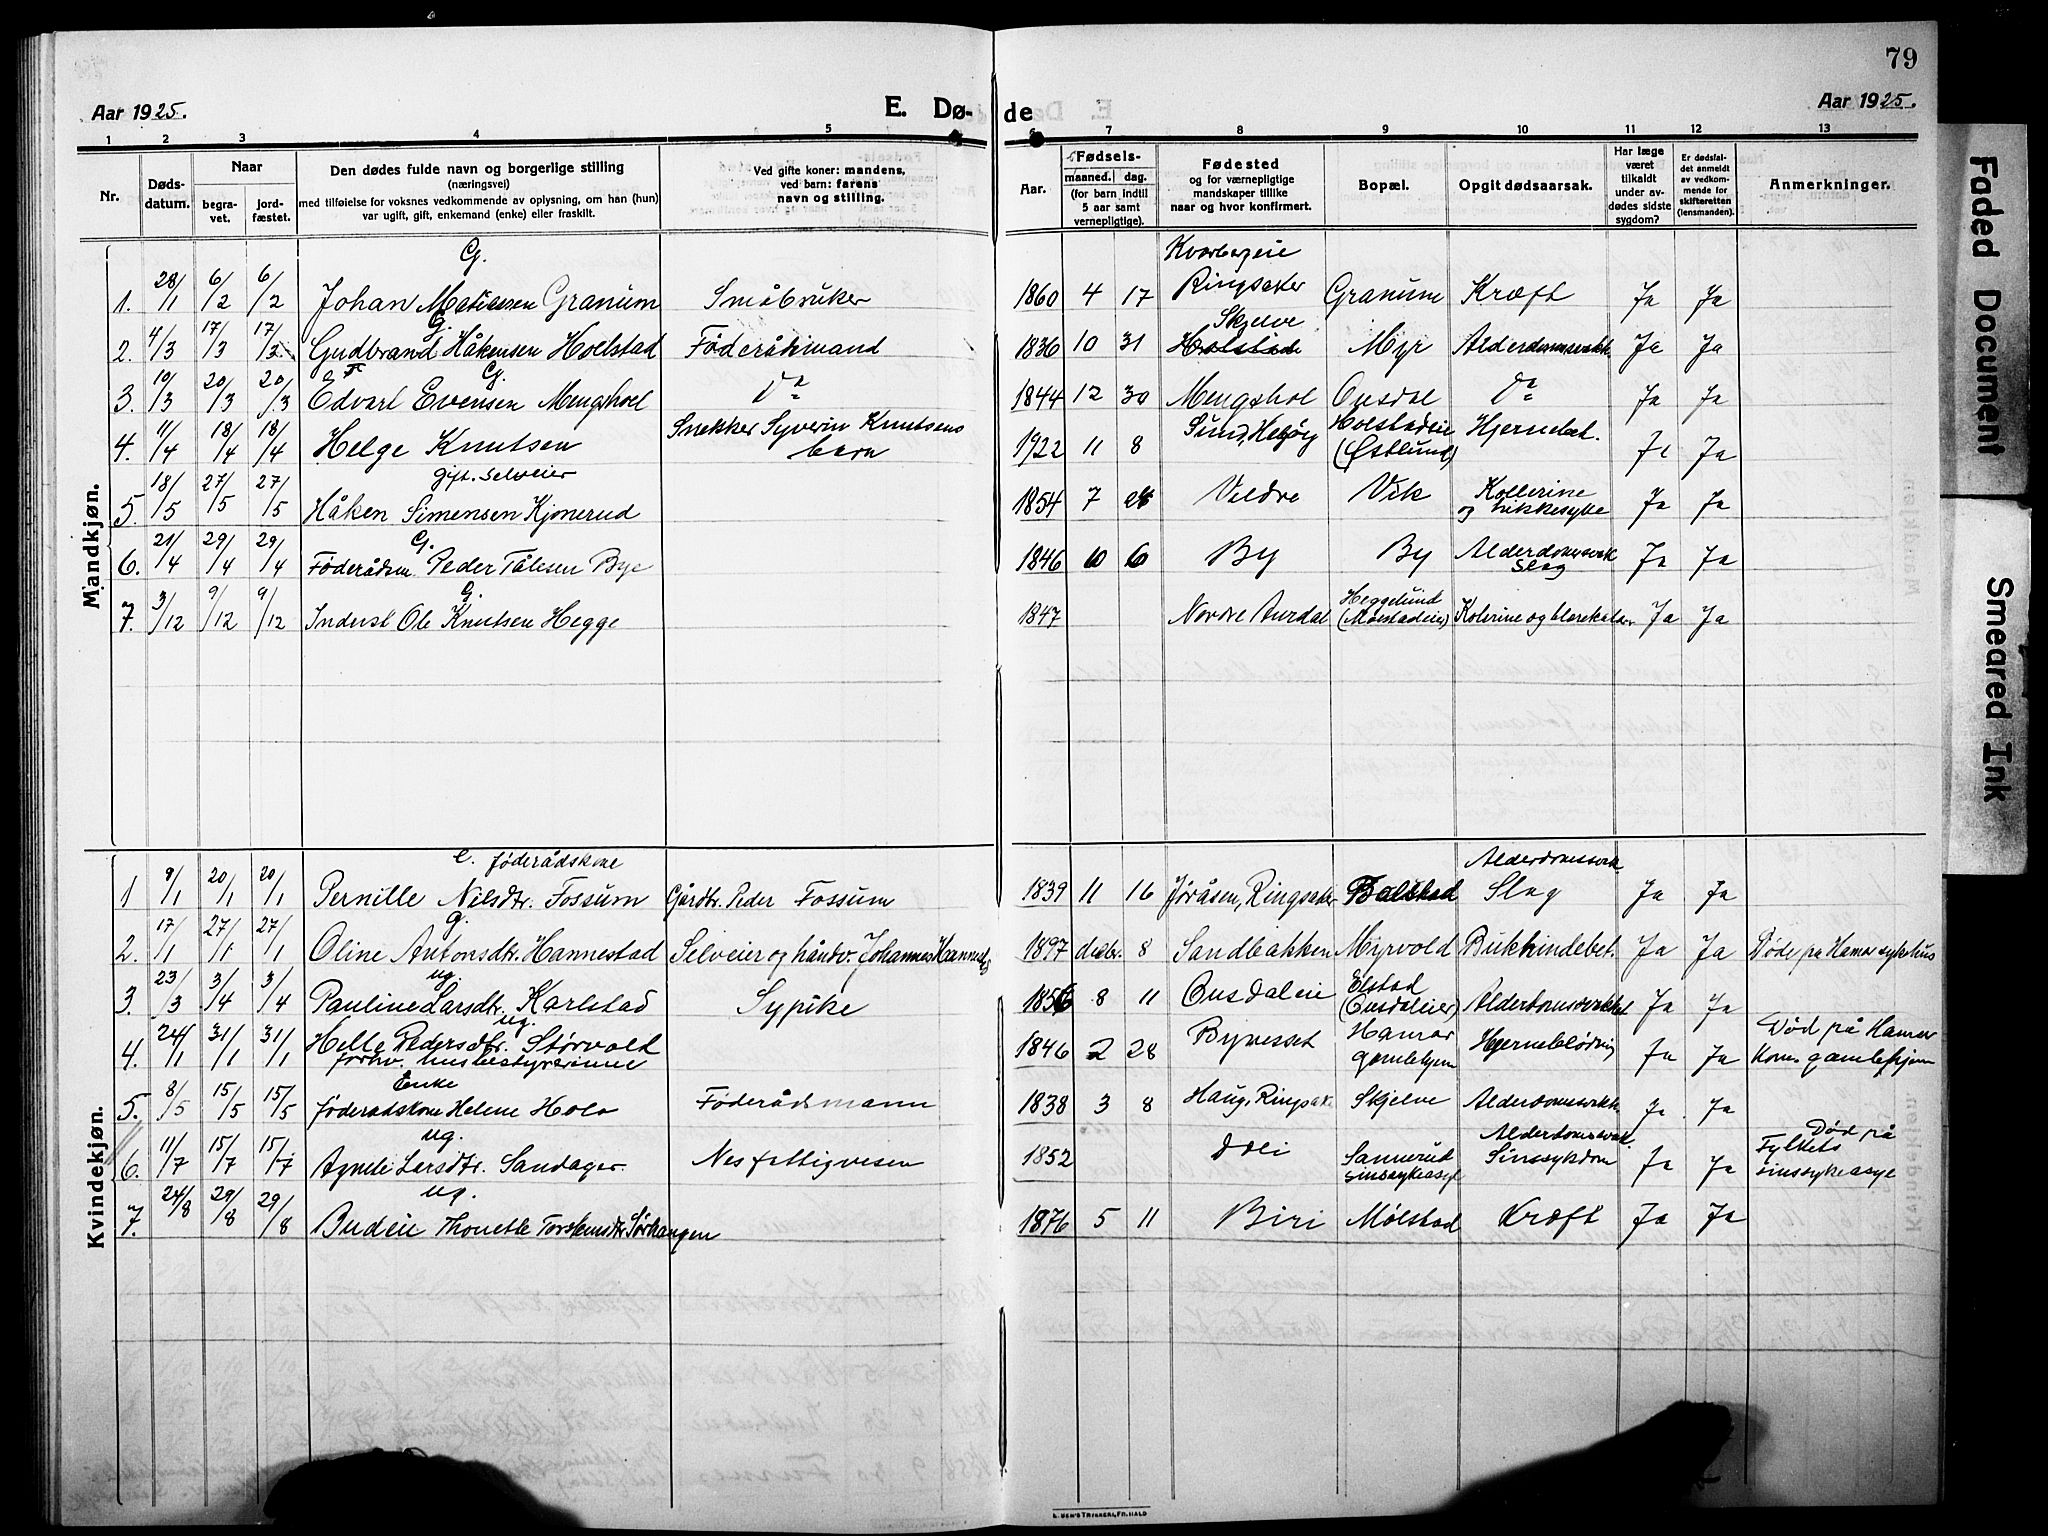 79
Aar 1925. E. Dø- de Aar 1925.
1 2 3 4 5 6 7 8 9 10 11 12 13
Nr. Døds-datum. Naar begra-vet. jord-fæstet. Den dødes fulde navn og borgerlige stilling (næringsvei) med tilføielse for voksnes vedkommende av oplysning, om han (hun) var ugift, gift, enkemand (enke) eller fraskilt. Ved gifte koner: mandens, ved barn: farens navn og stilling. Aar. Fødsels- maaned. dag. (for barn indtil 5 aar samt vernepligtige). Fødested og for værnepligtige mandskaper tillike naar og hvor konfirmert. Bopæl. Opgit dødsaarsak. Har læge været tilkaldt under av-dødes sidste sygdom? Er dødsfal-det anmeldt av vedkom-mende for skifteretten (lensmanden). Anmerkninger.
Mandkjøn.
G. Kvarbergeie
1. 28/1 6/2 6/2 Johan Matiasen Granum Småbruker 1860 4 17 Ringsaker Granum Kræft Ja Ja
G. Skjelve
2. 4/3 17/3 17/3 Gudbrand Håkensen Hoelstad Føderådsmand 1836 10 31 Holstad Myr Alderdomsvakk Ja Ja
F G.
3. 10/3 20/3 20/3 Edvart Evensen Mengshoel Do 1844 12 30 Mengshol Ousdal Do Ja Ja
4. 11/4 18/4 18/4 Helge Knutsen Snekker Syverin Knutsens barn 1922 11 8 Sund, Helgøy Holstadeie (Østlund) Hjernebet. Ja Ja
gift. selveier
5. 18/5 27/5 27/5 Håken Simensen Kjonerud 1854 7 Veldre Vik Kollerine og hikkesyke Ja Ja
G.
6. 21/4 29/4 29/4 Føderådsm. Peder Tålesen Bye 1846 10 6 By By Alderdomsvak Slag Ja Ja
G.
7. 3/12 9/12 9/12 Inderst Ole Knutsen Hegge 1847 Nordre Aurdal Heggelund (Molstadeie) Kolerine og blærekatar Ja Ja
Kvindekjøn.
e. føderådskone
1 9/1 20/1 20/1 Pernille Nilsdtr. Fossum Gårdbr. Peder Fossum 1839 11 16 Jøråsen, Ringsaker Balstad Alderdomssvak Slag Ja Ja
G.
2. 17/1 27/1 27/1 Oline Antonsdtr. Hannestad Selveier og håndv. Johannes Hannestad 1897 decbr. 8 Sandbakken Myrvold Bukhindebet. Ja Ja Døde på Hamar sykehus
ug.
3. 23/3 3/4 3/4 Pauline Larsdtr. Karlstad Sypike 1856 8 11 Ousdaleie Elstad (Ousdaleier) Alderdomssvakhet Ja Ja
ug.
4. 24/1 31/1 31/1 Helle Pedersdtr. Størvold forhv. husbestyrerinne 1846 2 28 Byvesset Hamar gamlehjem Hjerneblødning Ja Ja Død på Hamar Kom. gamlehjem
Enke
5. 8/5 15/5 15/5 føderadskone Helene Holo Føderådsmann 1838 3 8 Haug, Ringsaker Skjelve Alderdomssvakh. Ja Ja
ug.
6. 11/7 15/7 15/7 Agnete Larsdtr. Sandager Nes fattigvesen 1852 Doli Sannerud sinssykeasyl Alderdomssvak. Sinssykdom Ja Ja Død på Fylkets sinssykeasyl
ug.
7. 24/8 29/8 29/8 Budeie Thonette Torstensdtr Sørhaugen 1876 5 11 Biri Mølstad Kræft Ja Ja
Faded Document
Smeared Ink